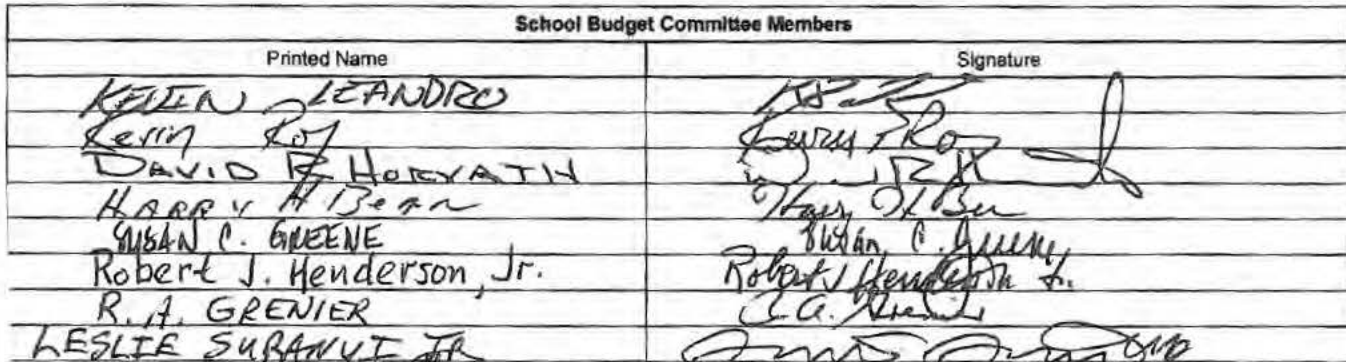 School Budget Committee Members
Printed Name Signature
KEVIN LEANDRO
Kevin Roy Kevin Roy
DAVID R HORVATH
HARRY H Bean Harry H Bean
SUSAN C. GREENE Susan C. Greene
Robert J. Henderson, Jr. Robert J Henderson Jr.
R. A. GRENIER R.A. Grenier
LESLIE SURANYI JR